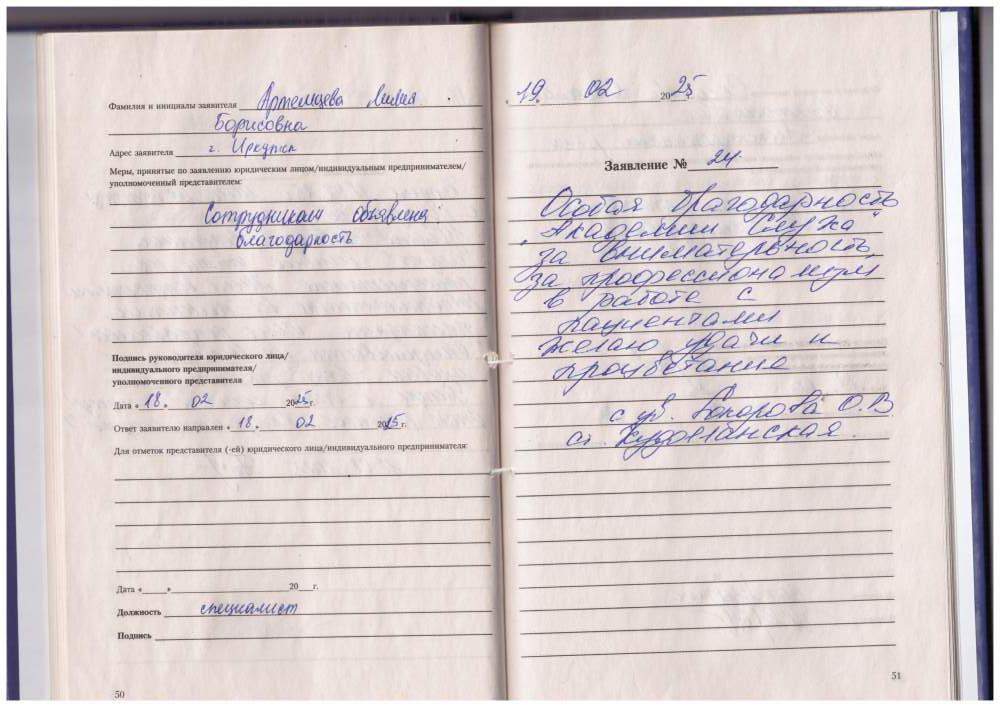 Фамилия и инициалы заявителя Артемцева Лилия
Борисовна
Адрес заявителя г. Иркутск
Меры, принятые по заявлению юридическим лицом/индивидуальным предпринимателем/
уполномоченный представителем:
Сотрудникам объявлена
благодарность
Подпись руководителя юридического лица/
индивидуального предпринимателя/
уполномоченного представителя
Дата «18» 02 2025г.
Ответ заявителю направлен «18» 02 2025г.
Для отметок представителя (-ей) юридического лица/индивидуального предпринимателя:
Дата «___» 20__г.
Должность специалист
Подпись
50
19. 02 2025г.
Заявление № 24
Особая благодарность
"Академии Слуха"
за внимательность
за профессионализм
в работе с
пациентами
Желаю удачи и
процветание
с ув. О.В
ст. Кудоеланская.
51